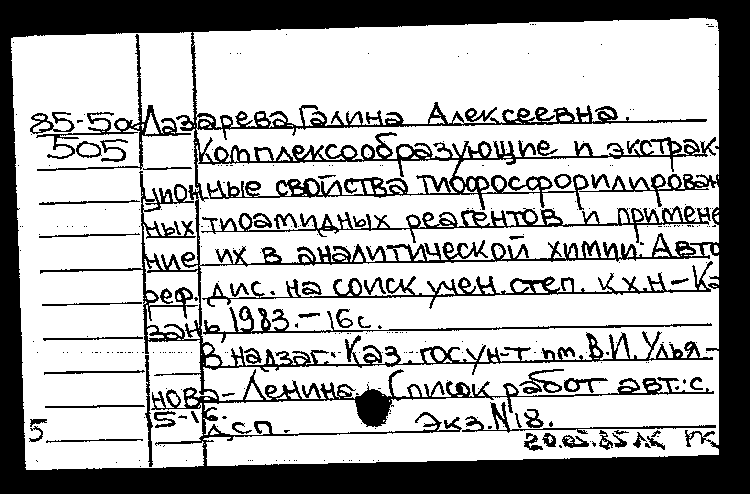 85-5а Лазарева, Галина Алексеевна.
505 Комплексообразующие и экстрак-
ционные свойства тиофосфорилирован
ных тиоамидных реагентов и примене
ние их в аналитической химии: Авто
реф. дис. на соиск. учен. степ. к.х.н. - Ка
зань, 1983. - 16 с.
В надзаг.: Каз. гос. ун-т им. В.И. Улья-
нова-Ленина. Список работ авт.: с.
15-16.
5 ДСП. Экз. N 18.
20.05.85 ЛК ГК